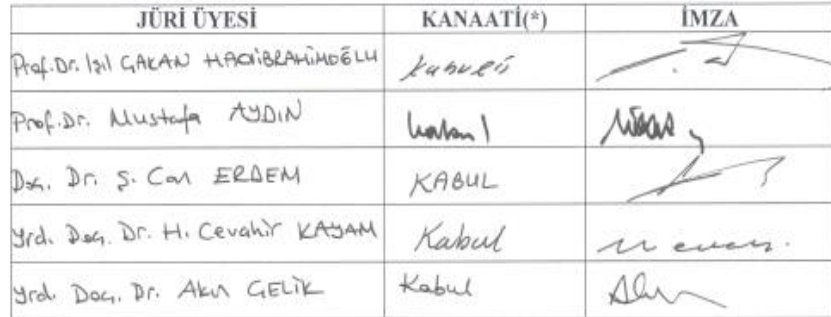 JÜRİ ÜYESİ KANAATİ(*) İMZA
Prof.Dr. Işıl ÇAKAN HACIİBRAHİMOĞLU
Prof.Dr. Mustafa AYDIN kabul
Doç. Dr. Ş. Can ERDEM KABUL
Yrd. Doç. Dr. H. Cevahir KAYAM Kabul
Yrd. Doç. Dr. Akın ÇELİK Kabul